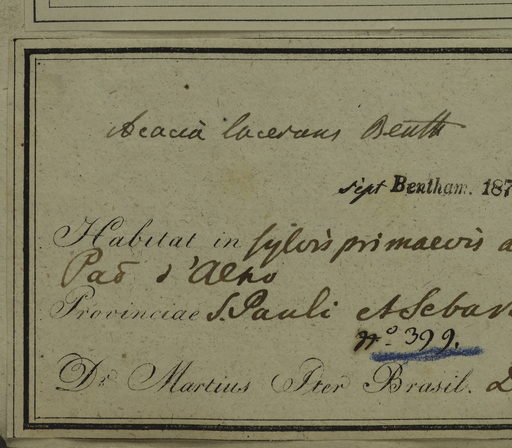 Acacia lacerans Benth
sept Bentham. 187
Habitat in sylvis primaevis a
Paō d'Alho
Provinciae S. Pauli et Sebas
No. 399.
Dr. Martius Iter Brasil.